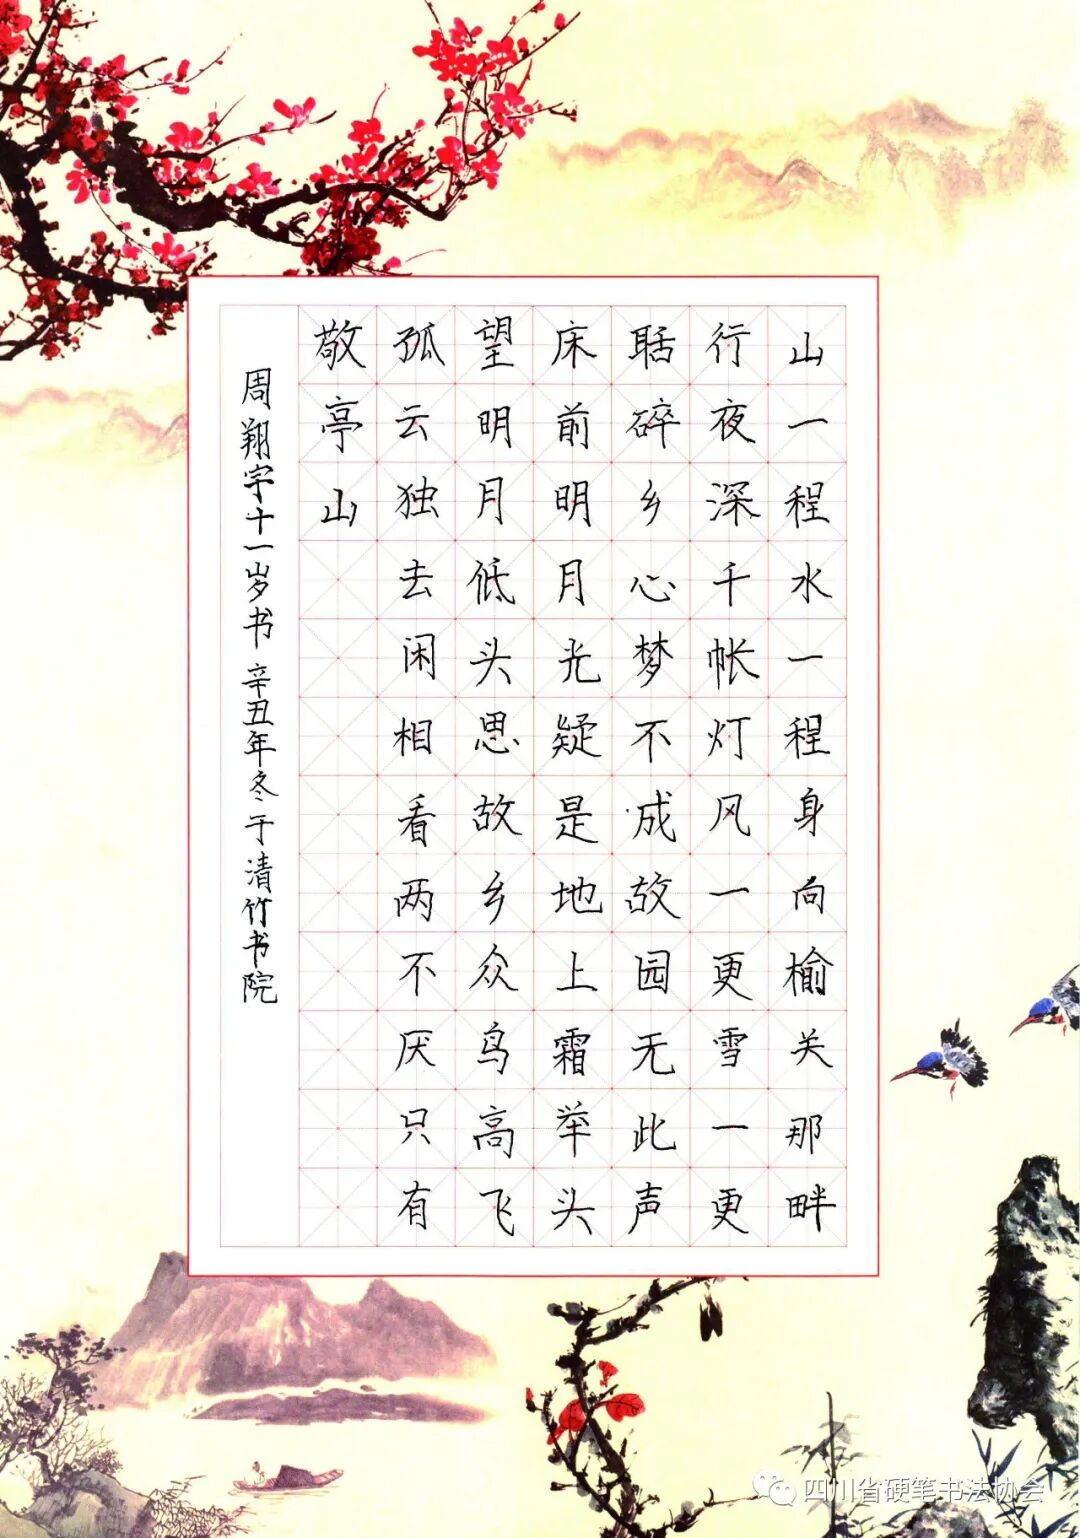 山一程水一程身向榆关那畔
行夜深千帐灯风一更雪一更
聒碎乡心梦不成故园无此声
床前明月光疑是地上霜举头
望明月低头思故乡众鸟高飞
孤云独去闲相看两不厌只有
敬亭山
周翔宇十一岁书 辛丑年冬于清竹书院
四川省硬笔书法协会